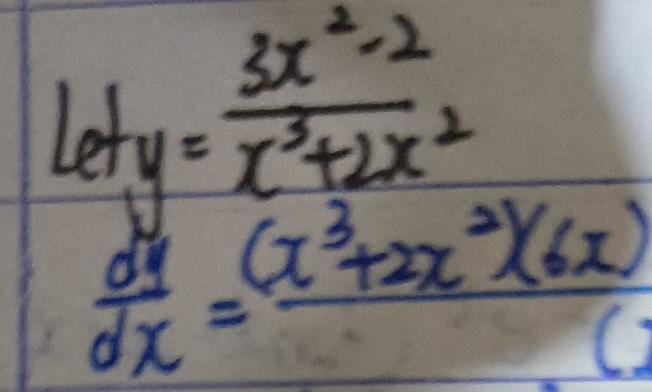 Let y = \frac{3x^2-2}{x^3+2x^2}
\frac{dy}{dx} = \frac{(x^3+2x^2)(6x)}{(}